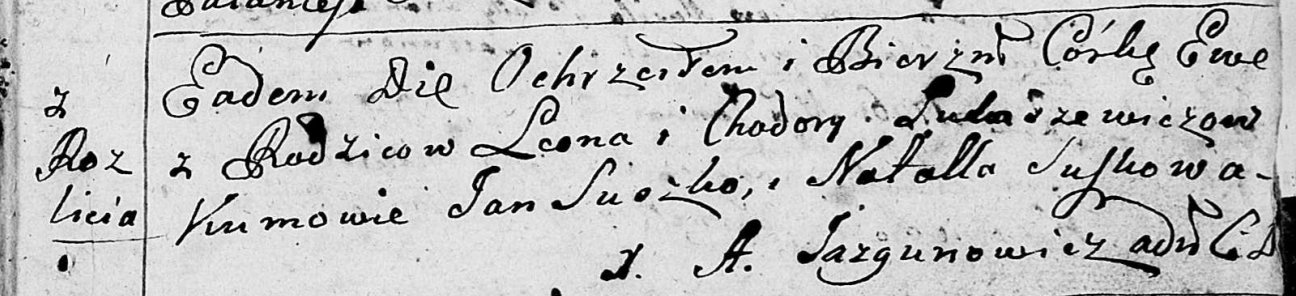 z
Roz
licia
Eadem Die Ochrzciłem i Bierzm Córkę Ewe
z Rodzicow Leona i Chodory Lukaszewiczow
Kumowie Jan Suszko, i Natalla Suszkowa-
X. A. Jazgunowicz adm